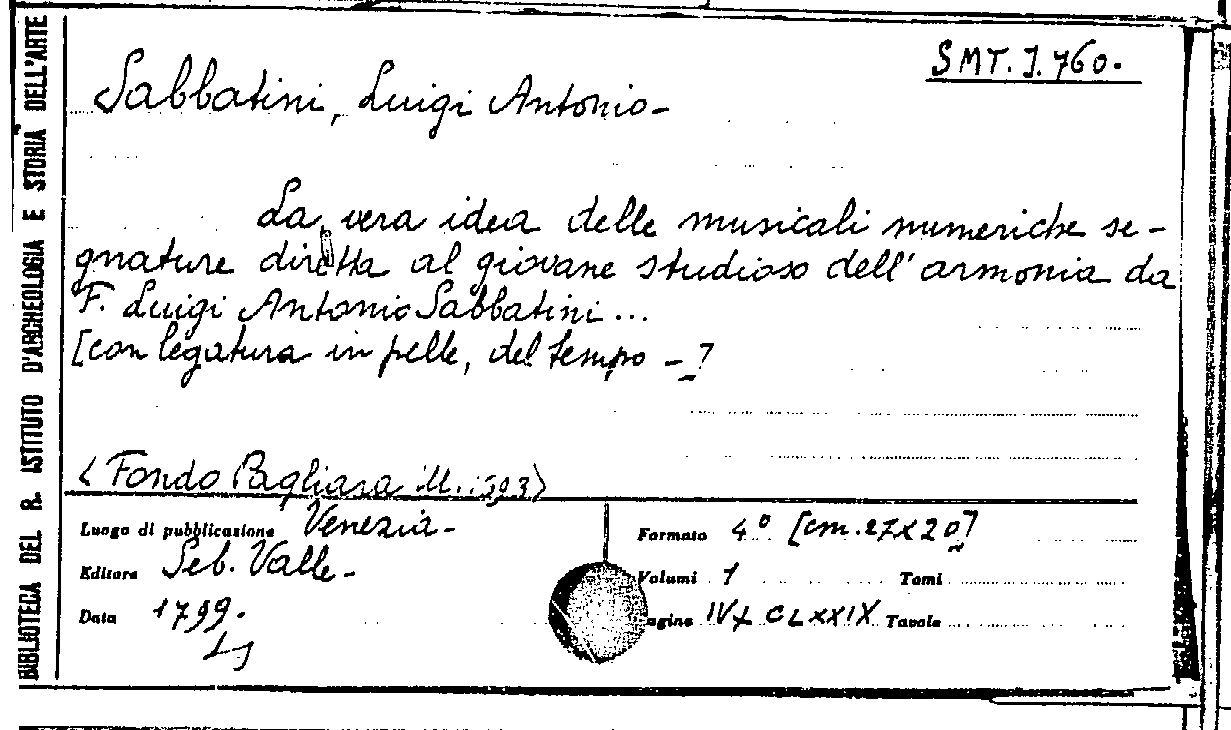 SMT. J. 760.
Sabbatini, Luigi Antonio-
La vera idea delle musicali numeriche se-
gnature diretta al giovane studioso dell'armonia da
F. Luigi Antonio Sabbatini...
[con legatura in pelle, del tempo -]
<Fondo Pagliara M. 1393>
Luogo di pubblicazione Venezia-
Editore Seb. Valle-
Data 1799.
Formato 4° [cm. 27x20]
Volumi 1 Tomi
agine IV+CLXXIX Tavole
BIBLIOTECA DEL R. ISTITUTO D'ARCHEOLOGIA E STORIA DELL'ARTE